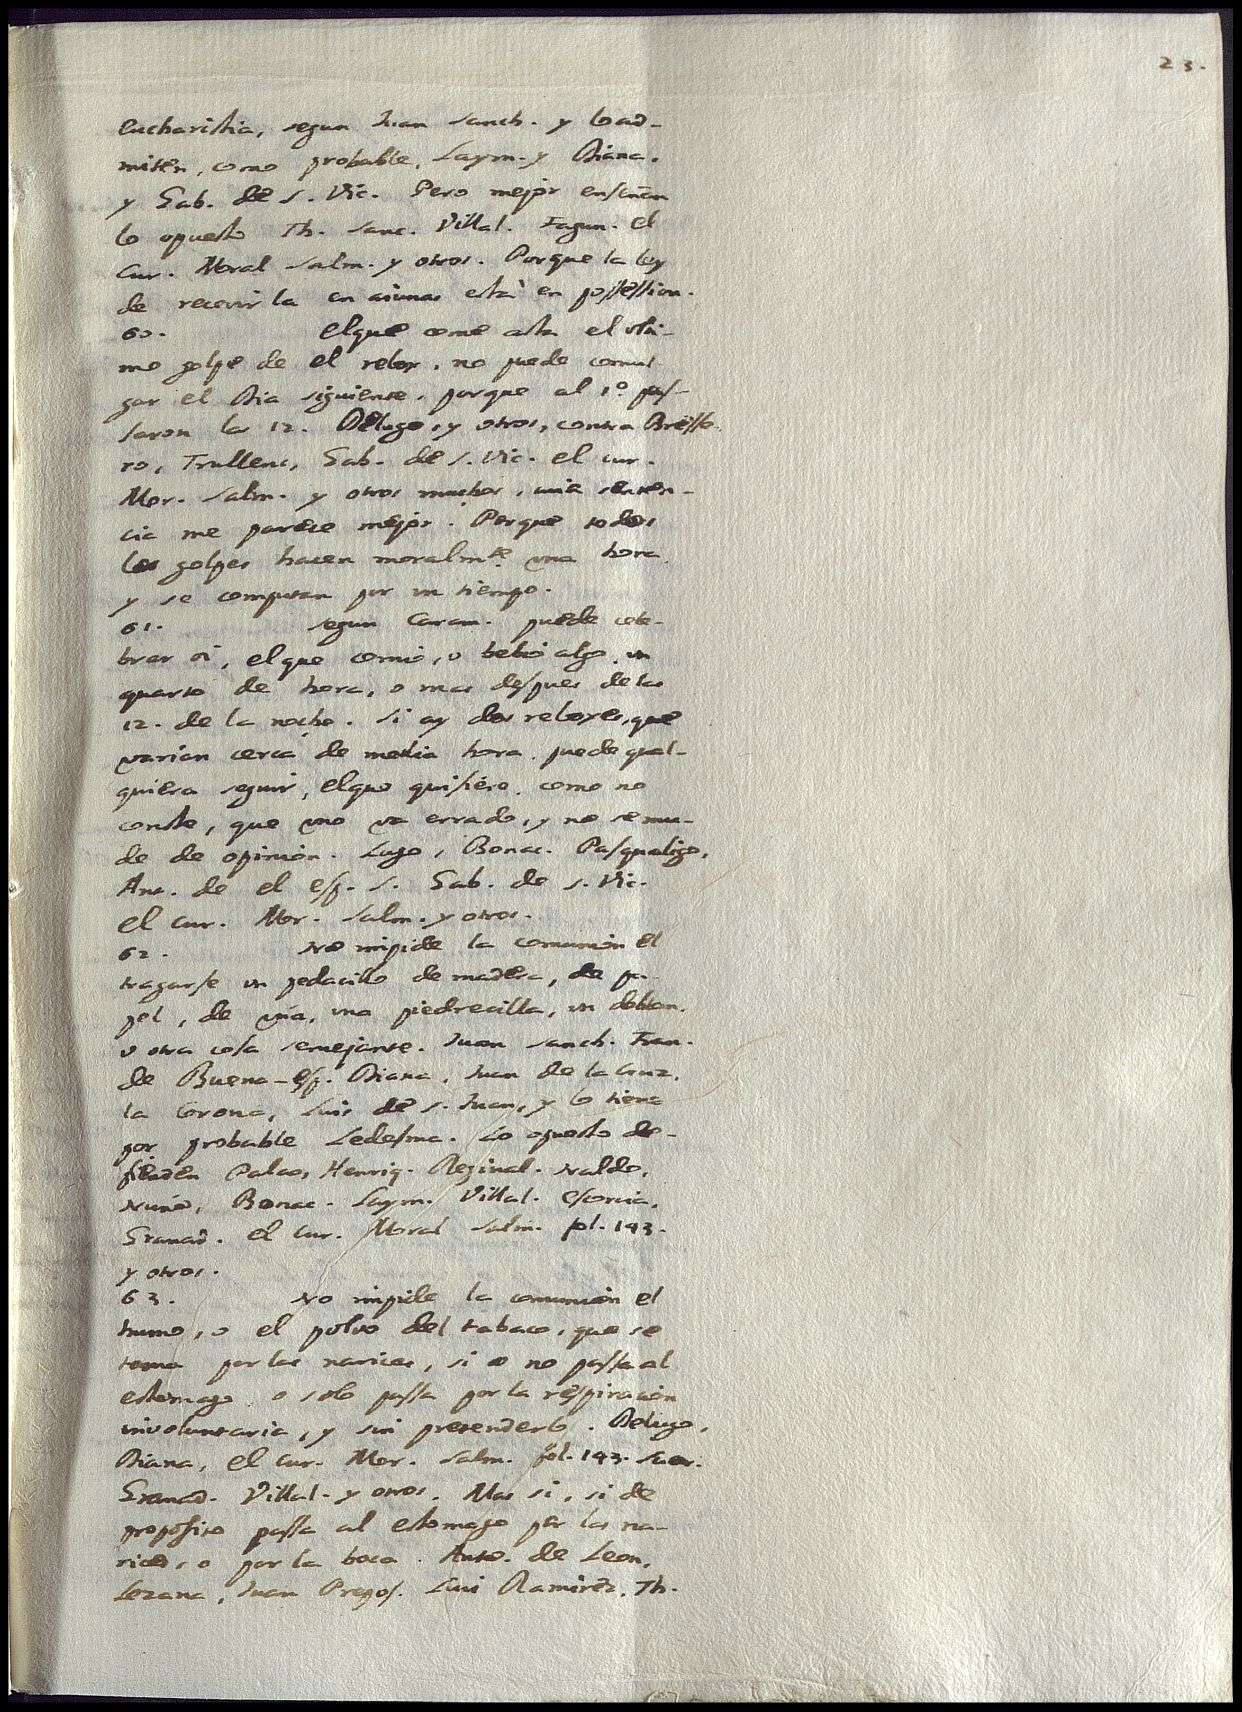 23.
Eucharistia, segun Juan Sanch. y lo ad-
miten, como probable, Laym. y Diana.
y Gab. de S. Vic. Pero mejor enseñan
lo opuesto Th. Sanc. Villal. Fagun. el
Cur. Moral Salm. y otros. Porque la ley
de recevir la en aiunas està en possession.
60. El que come asta el ulti-
mo golpe de el relox, no puede comul
gar el Dia siguiente, porque al 1º. pas-
saron las 12. Delugo, y otros, contra Bresse
ro, Trullenc, Gab. de S. Vic. el Cur.
Mor. Salm. y otros muchos, cuia senten-
cia me parece mejor. Porque todos
los golpes hacen moralmte. una hora
y se computan por un tiempo.
61. Segun Caram. puede cele-
brar oi, el que comio, o bebio algo, un
quarto de hora, o mas despues de las
12. de la noche. Si ay dos reloxes, que
varian cerca de media hora, puede qual-
quiera seguir, el que quisiere, como no
conste, que uno va errado, y no se mu-
de de opinion. Lugo, Bonac. Pasqualigo,
Ant. de el Esp. S. Gab. de S. Vic.
el Cur. Mor. Salm. y otros.
62. No impide la comunion el
tragarse un pedacillo de madera, de pa-
pel, de uña, una piedrecilla, un doblon,
v otra cosa semejante. Juan Sanch. Fran.
de Buena-Esp. Diana, Juan de la Cruz,
la Corona, Luis de S. Juan, y lo tiene
por probable Ledesma. Lo opuesto de-
fienden Palao, Henriq. Reginal. Naldo,
Nuño, Bonac. Laym. Villal. Escorcia,
Granad. el Cur. Moral Salm. fol. 143.
y otros.
63. No impide la comunion el
humo, o el polvo del tabaco, que se
toma por las narices, si no passa al
estomago, o solo passa por la respiracion
involuntaria, y sin pretenderlo. Delugo,
Diana, el Cur. Mor. Salm. fol. 143.
Granad. Villal. y otros. Mas si, si de
proposito passa al estomago por las na-
rices, o por la boca. Anto. de Leon,
Lezana, Juan Pregos. Luis Ramirez, Th.